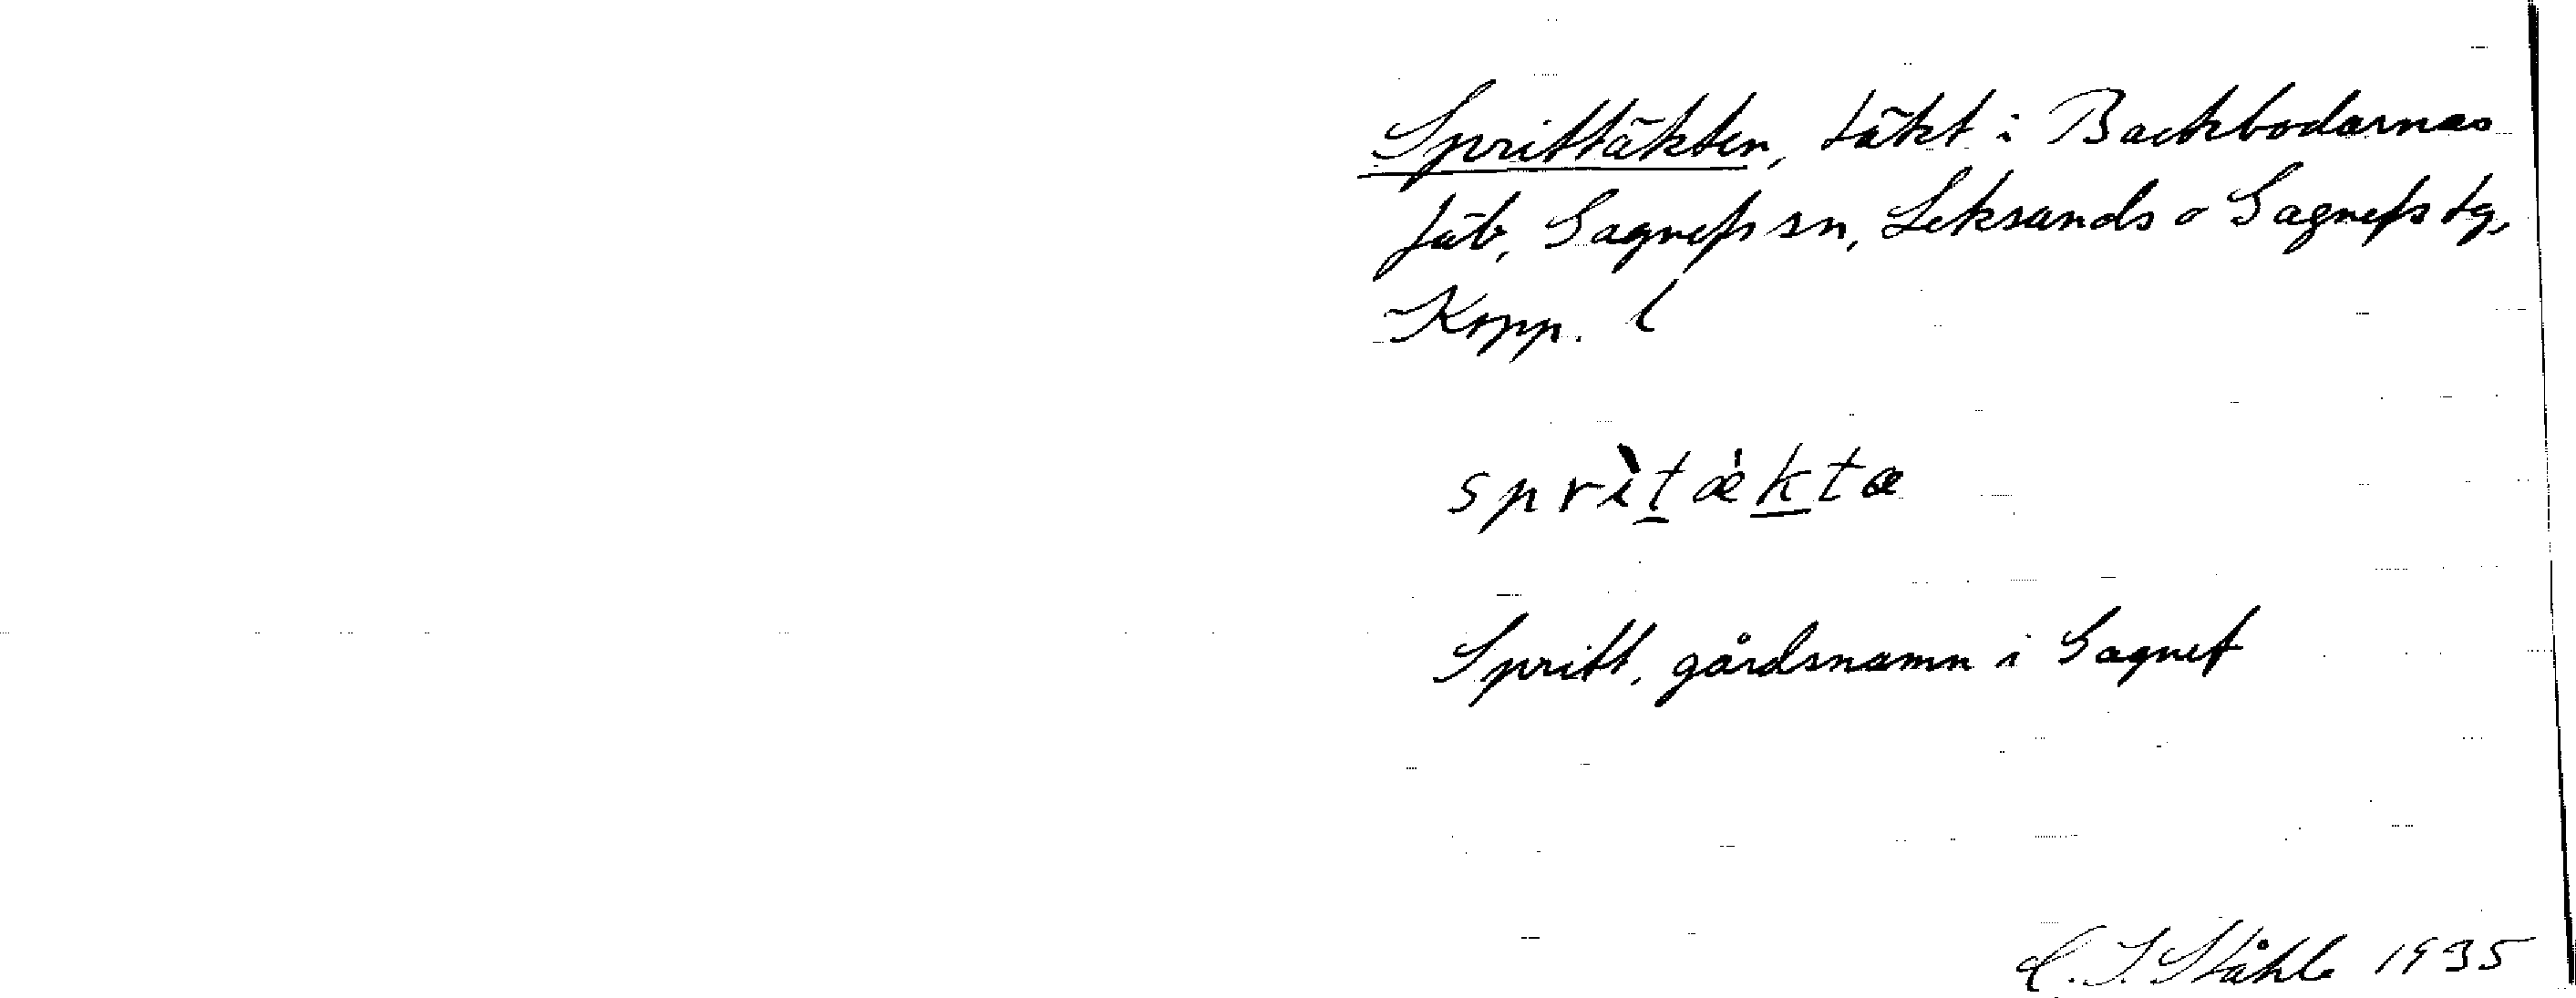 Sprittäkten, täkt i Backbodarnas
fäb, Gagnefs sn, Leksands o Gagnefs tg,
Kopp. l
sprìtæ̀ktæ
Spritt, gårdsnamn i Gagnef
C. I. Ståhle 1935